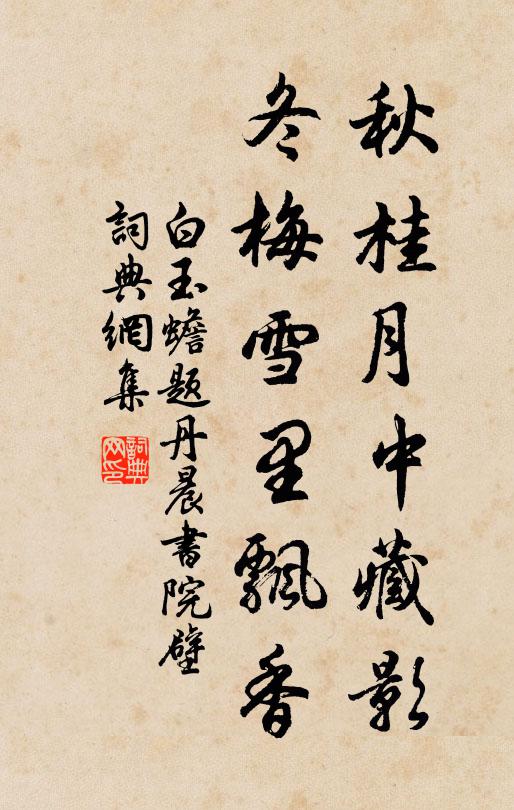 秋桂月中藏影
冬梅雪里飄香
白玉蟾题丹晨書院壁
詞典網集
詞典网印